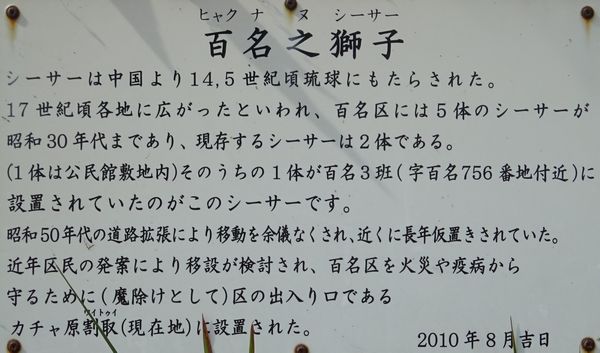 ヒャク ナ ヌ シーサー
百名之獅子
シーサーは中国より14,5世紀頃琉球にもたらされた。
17世紀頃各地に広がったといわれ、百名区には5体のシーサーが
昭和30年代まであり、現存するシーサーは2体である。
(1体は公民館敷地内)そのうちの1体が百名3班(字百名756番地付近)に
設置されていたのがこのシーサーです。
昭和50年代の道路拡張により移動を余儀なくされ、近くに長年仮置きされていた。
近年区民の発案により移設が検討され、百名区を火災や疫病から
守るために(魔除けとして)区の出入り口である
ワイトゥイ
カチャ原割取(現在地)に設置された。
2010年8月吉日